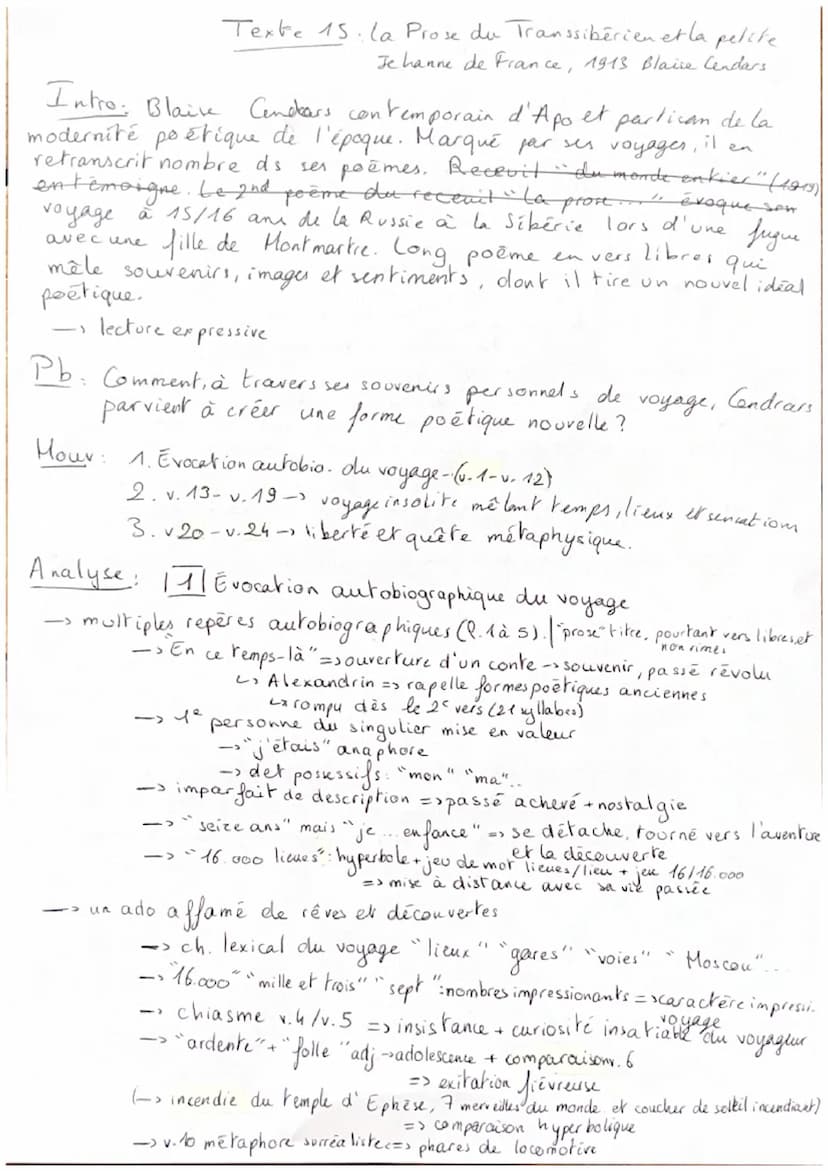 Texte 15 : la Prose du Transsibérien et la petite
Jehanne de France, 1913 Blaise Cendars
Intro : Blaise Cendrars contemporain d'Apo et partisan de la
modernité poétique de l'époque. Marqué par ses voyages, il en
retranscrit nombre ds ses poèmes. Receuil "du monde entier" (1919)
en témoigne. Le 2nd poème du receuil "La prose..." évoque son
voyage à 15/16 ans de la Russie à la Sibérie lors d'une fugue
avec une fille de Montmartre. Long poème en vers libres qui
mêle souvenirs, images et sentiments, dont il tire un nouvel idéal
poétique.
→ lecture expressive
Pb : Comment, à travers ses souvenirs personnels de voyage, Cendrars
parvient à créer une forme poétique nouvelle ?
Mouv : 1. Évocation autobio. du voyage - (v.1 - v. 12)
2. v.13 - v.19 → voyage insolite mêlant temps, lieux et sensations
3. v20 - v.24 → liberté et quête métaphysique.
Analyse : |1| Évocation autobiographique du voyage
→ multiples repères autobiographiques (l. 1 à 5). | "prose" titre, pourtant vers libres et
non rimés
→ "En ce temps-là" => ouverture d'un conte → souvenir, passé révolu
↳ Alexandrin => rapelle formes poétiques anciennes
↳ rompu dès le 2e vers (21 syllabes)
→ 1e personne du singulier mise en valeur
→ "j'étais" anaphore
→ det possessifs : "mon" "ma"..
→ imparfait de description => passé achevé + nostalgie
→ "seize ans" mais "je ... enfance" => se détache, tourné vers l'aventure
et la découverte
→ "16.000 lieues" : hyperbole + jeu de mot lieues/lieu + jeu 16/16.000
=> mise à distance avec sa vie passée
→ un ado affamé de rêves et découvertes
→ ch. lexical du voyage "lieux" "gares" "voies" "Moscou"...
→ "16.000" "mille et trois" "sept" : nombres impressionants => caractère impressi.
voyage
→ chiasme v.4/v.5 => insistance + curiosité insatiable du voyageur
→ "ardente" + "folle" adj → adolescence + comparaison v. 6
=> exitation fiévreuse
(→ incendie du temple d'Ephèse, 7 merveilles du monde et coucher de soleil incendiant)
=> comparaison hyperbolique
→ v.10 métaphore surréaliste <=> phares de locomotive